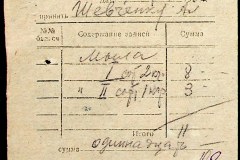 принять Шевченко Ал
№№ Содержание записи Сумма
Мыла
1 сорт 2 кгр. 8 -
" II сорт 1 кгр 3 -
Итого 11
сумма одиннадцать